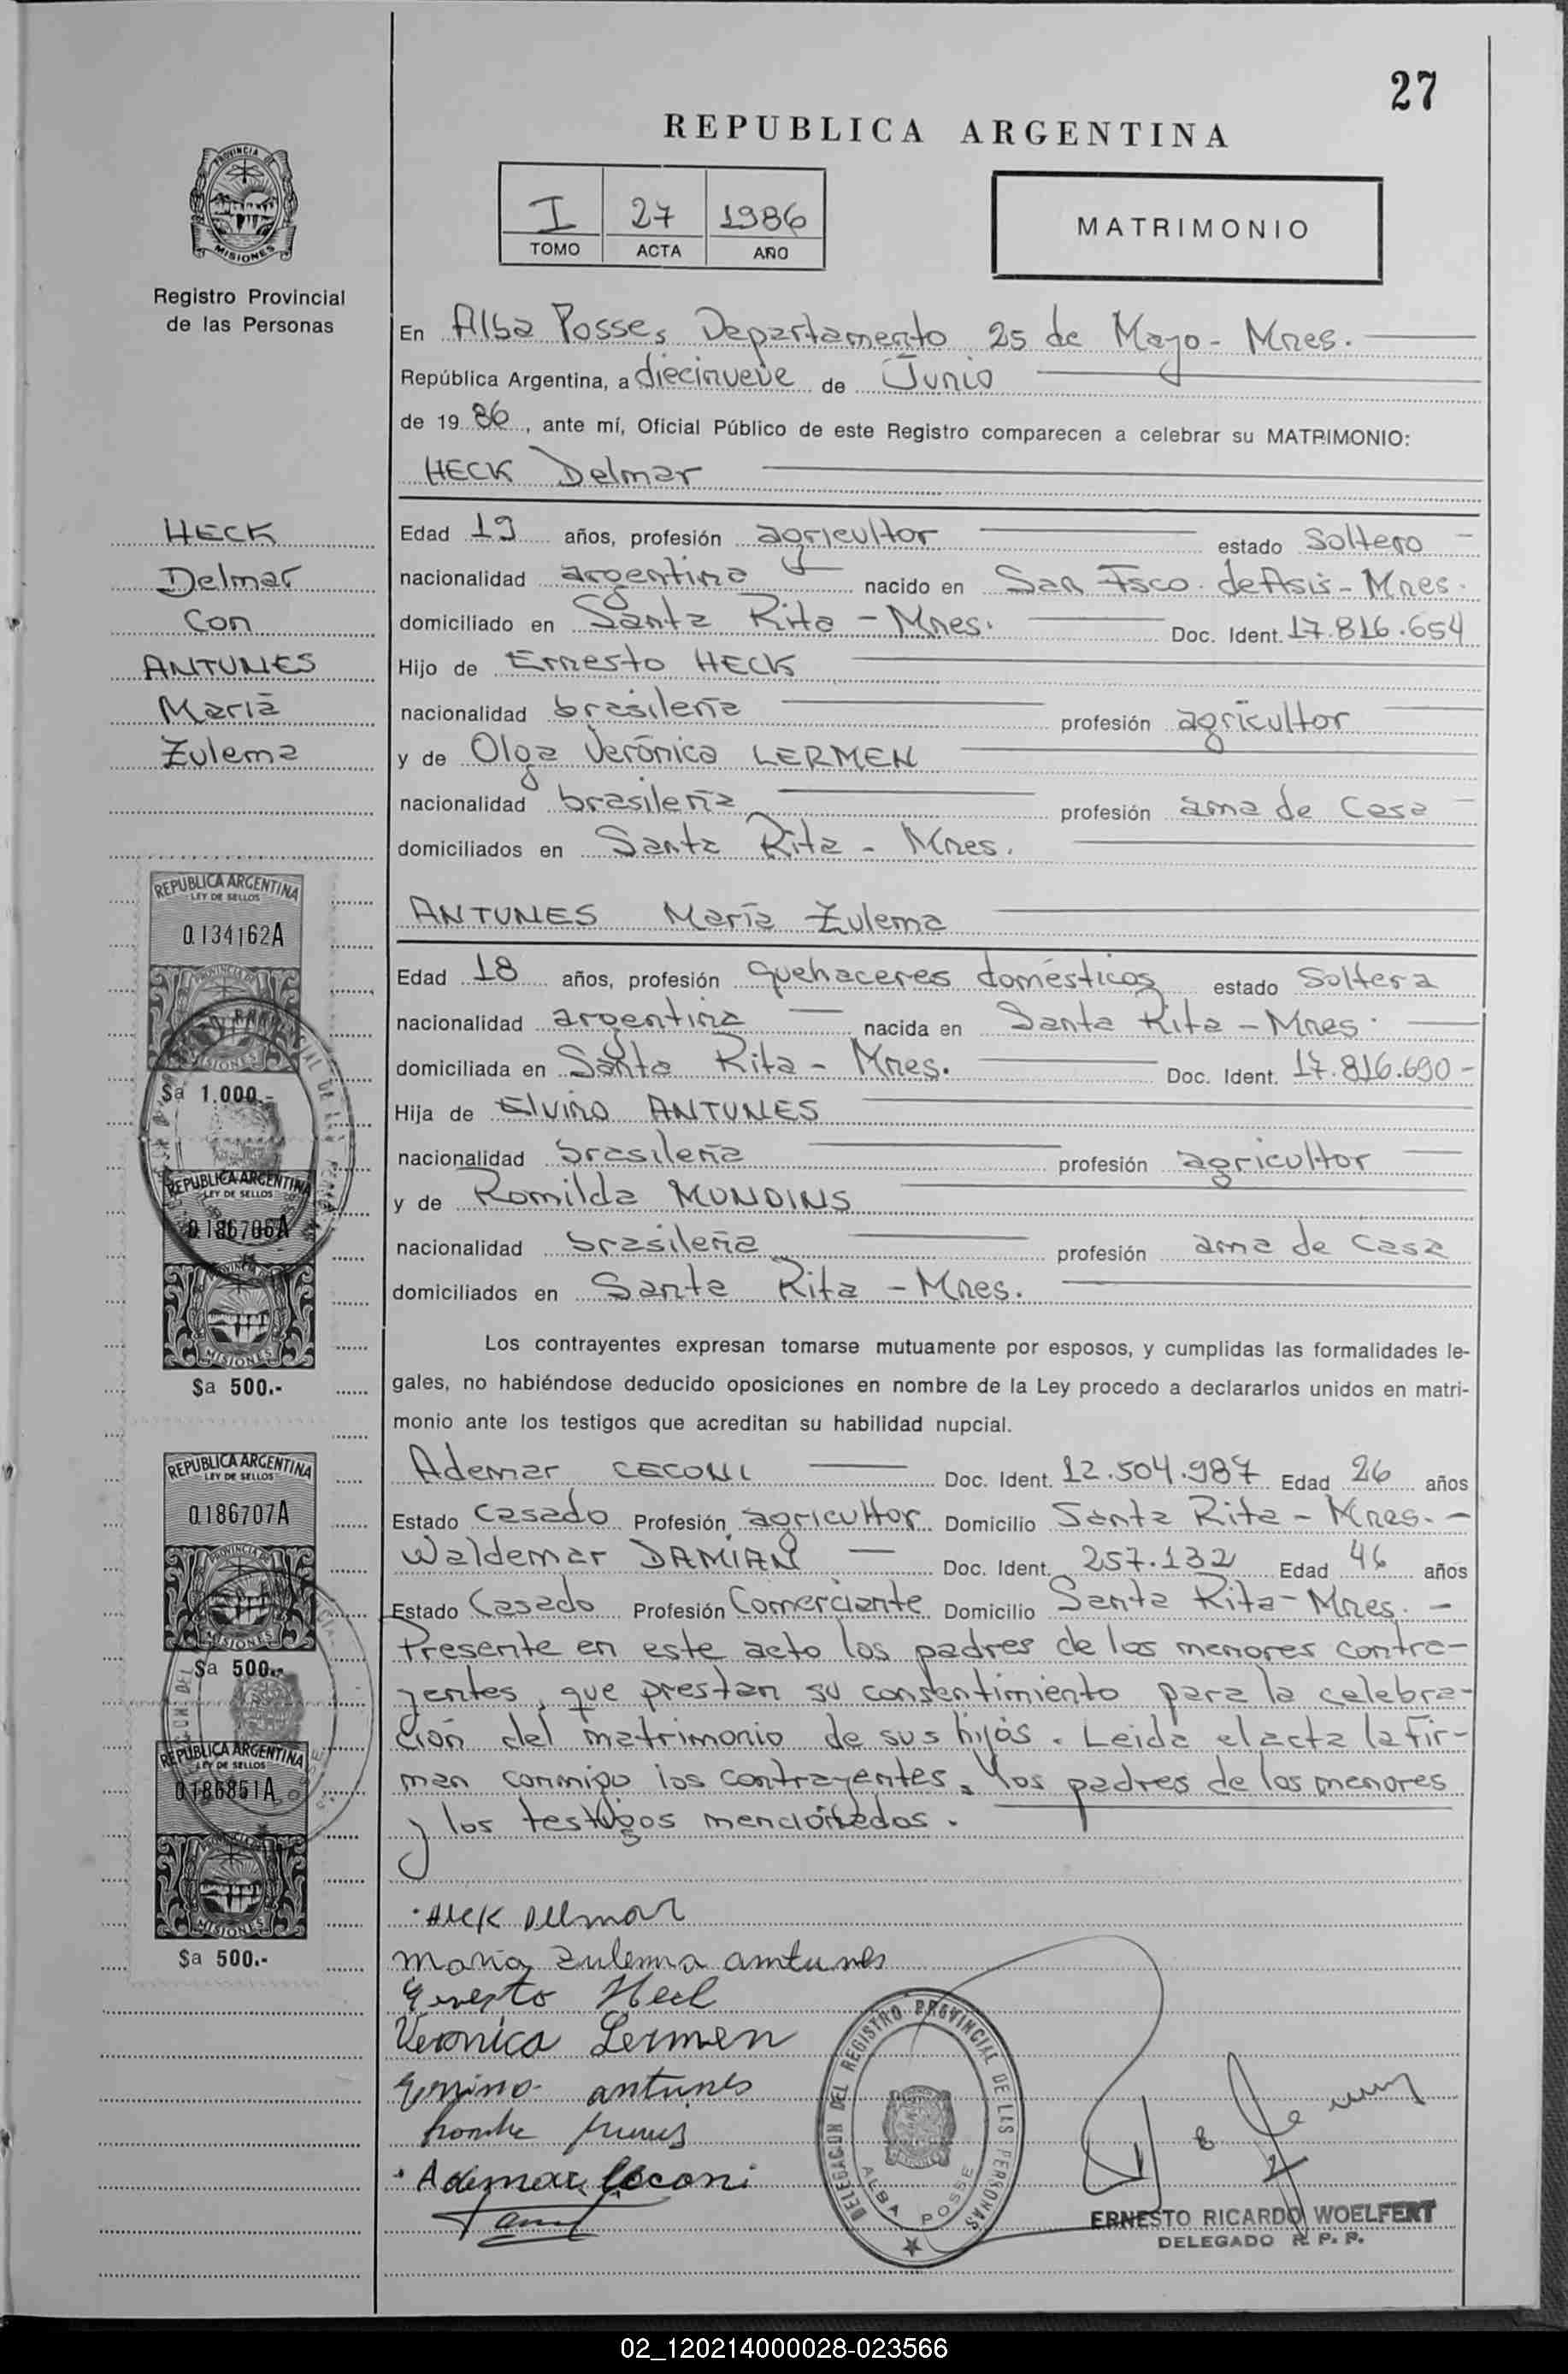 27
REPUBLICA ARGENTINA
PROVINCIA DE
MISIONES
Registro Provincial
de las Personas
I 27 1986
TOMO ACTA AÑO
MATRIMONIO
En Alba Posse, Departamento 25 de Mayo - Mnes.
República Argentina, a diecinueve de Junio
de 19 86, ante mí, Oficial Público de este Registro comparecen a celebrar su MATRIMONIO:
HECK Delmar
HECK
Delmar
Con
ANTUNES
María
Zulema
Edad 19 años, profesión agricultor estado Soltero
nacionalidad argentina nacido en San Fsco. de Asís - Mnes.
domiciliado en Santa Rita - Mnes. Doc. Ident. 17.816.654
Hijo de Ernesto HECK
nacionalidad brasileña profesión agricultor
y de Olga Verónica LERMEN
nacionalidad brasileña profesión ama de Casa
domiciliados en Santa Rita - Mnes.
ANTUNES María Zulema
Edad 18 años, profesión quehaceres domésticos estado Soltera
nacionalidad argentina nacida en Santa Rita - Mnes.
domiciliada en Santa Rita - Mnes. Doc. Ident. 17.816.690 -
Hija de Elvino ANTUNES
nacionalidad brasileña profesión agricultor
y de Romilda MUNDINS
nacionalidad brasileña profesión ama de Casa
domiciliados en Santa Rita - Mnes.
Los contrayentes expresan tomarse mutuamente por esposos, y cumplidas las formalidades le-
gales, no habiéndose deducido oposiciones en nombre de la Ley procedo a declararlos unidos en matri-
monio ante los testigos que acreditan su habilidad nupcial.
Ademar CECONI Doc. Ident. 12.504.987 Edad 26 años
Estado Casado Profesión agricultor Domicilio Santa Rita - Mnes. -
Waldemar DAMIAN Doc. Ident. 257.132 Edad 46 años
Estado Casado Profesión Comerciante Domicilio Santa Rita - Mnes. -
Presente en este acto los padres de los menores contra-
yentes, que prestan su consentimiento para la celebra-
ción del matrimonio de sus hijos. Leida el acta la fir-
man conmigo los contrayentes, los padres de los menores
y los testigos mencionados.
REPUBLICA ARGENTINA
LEY DE SELLOS
0.134162A
PROVINCIA DE
MISIONES
$a 1.000.-
REPUBLICA ARGENTINA
LEY DE SELLOS
0.186706A
PROVINCIA DE
MISIONES
$a 500.-
REPUBLICA ARGENTINA
LEY DE SELLOS
0.186707A
PROVINCIA DE
MISIONES
$a 500.-
REPUBLICA ARGENTINA
LEY DE SELLOS
0.186851A
MISIONES
$a 500.-
Heck Delmar
Maria Zulema Antunes
Ernesto Heck
Veronica Lermen
antunes
Ademar Ceconi
DELEGACION DEL REGISTRO PROVINCIAL DE LAS PERSONAS
ALBA POSSE
ERNESTO RICARDO WOELFERT
DELEGADO R. P. P.
02_120214000028-023566